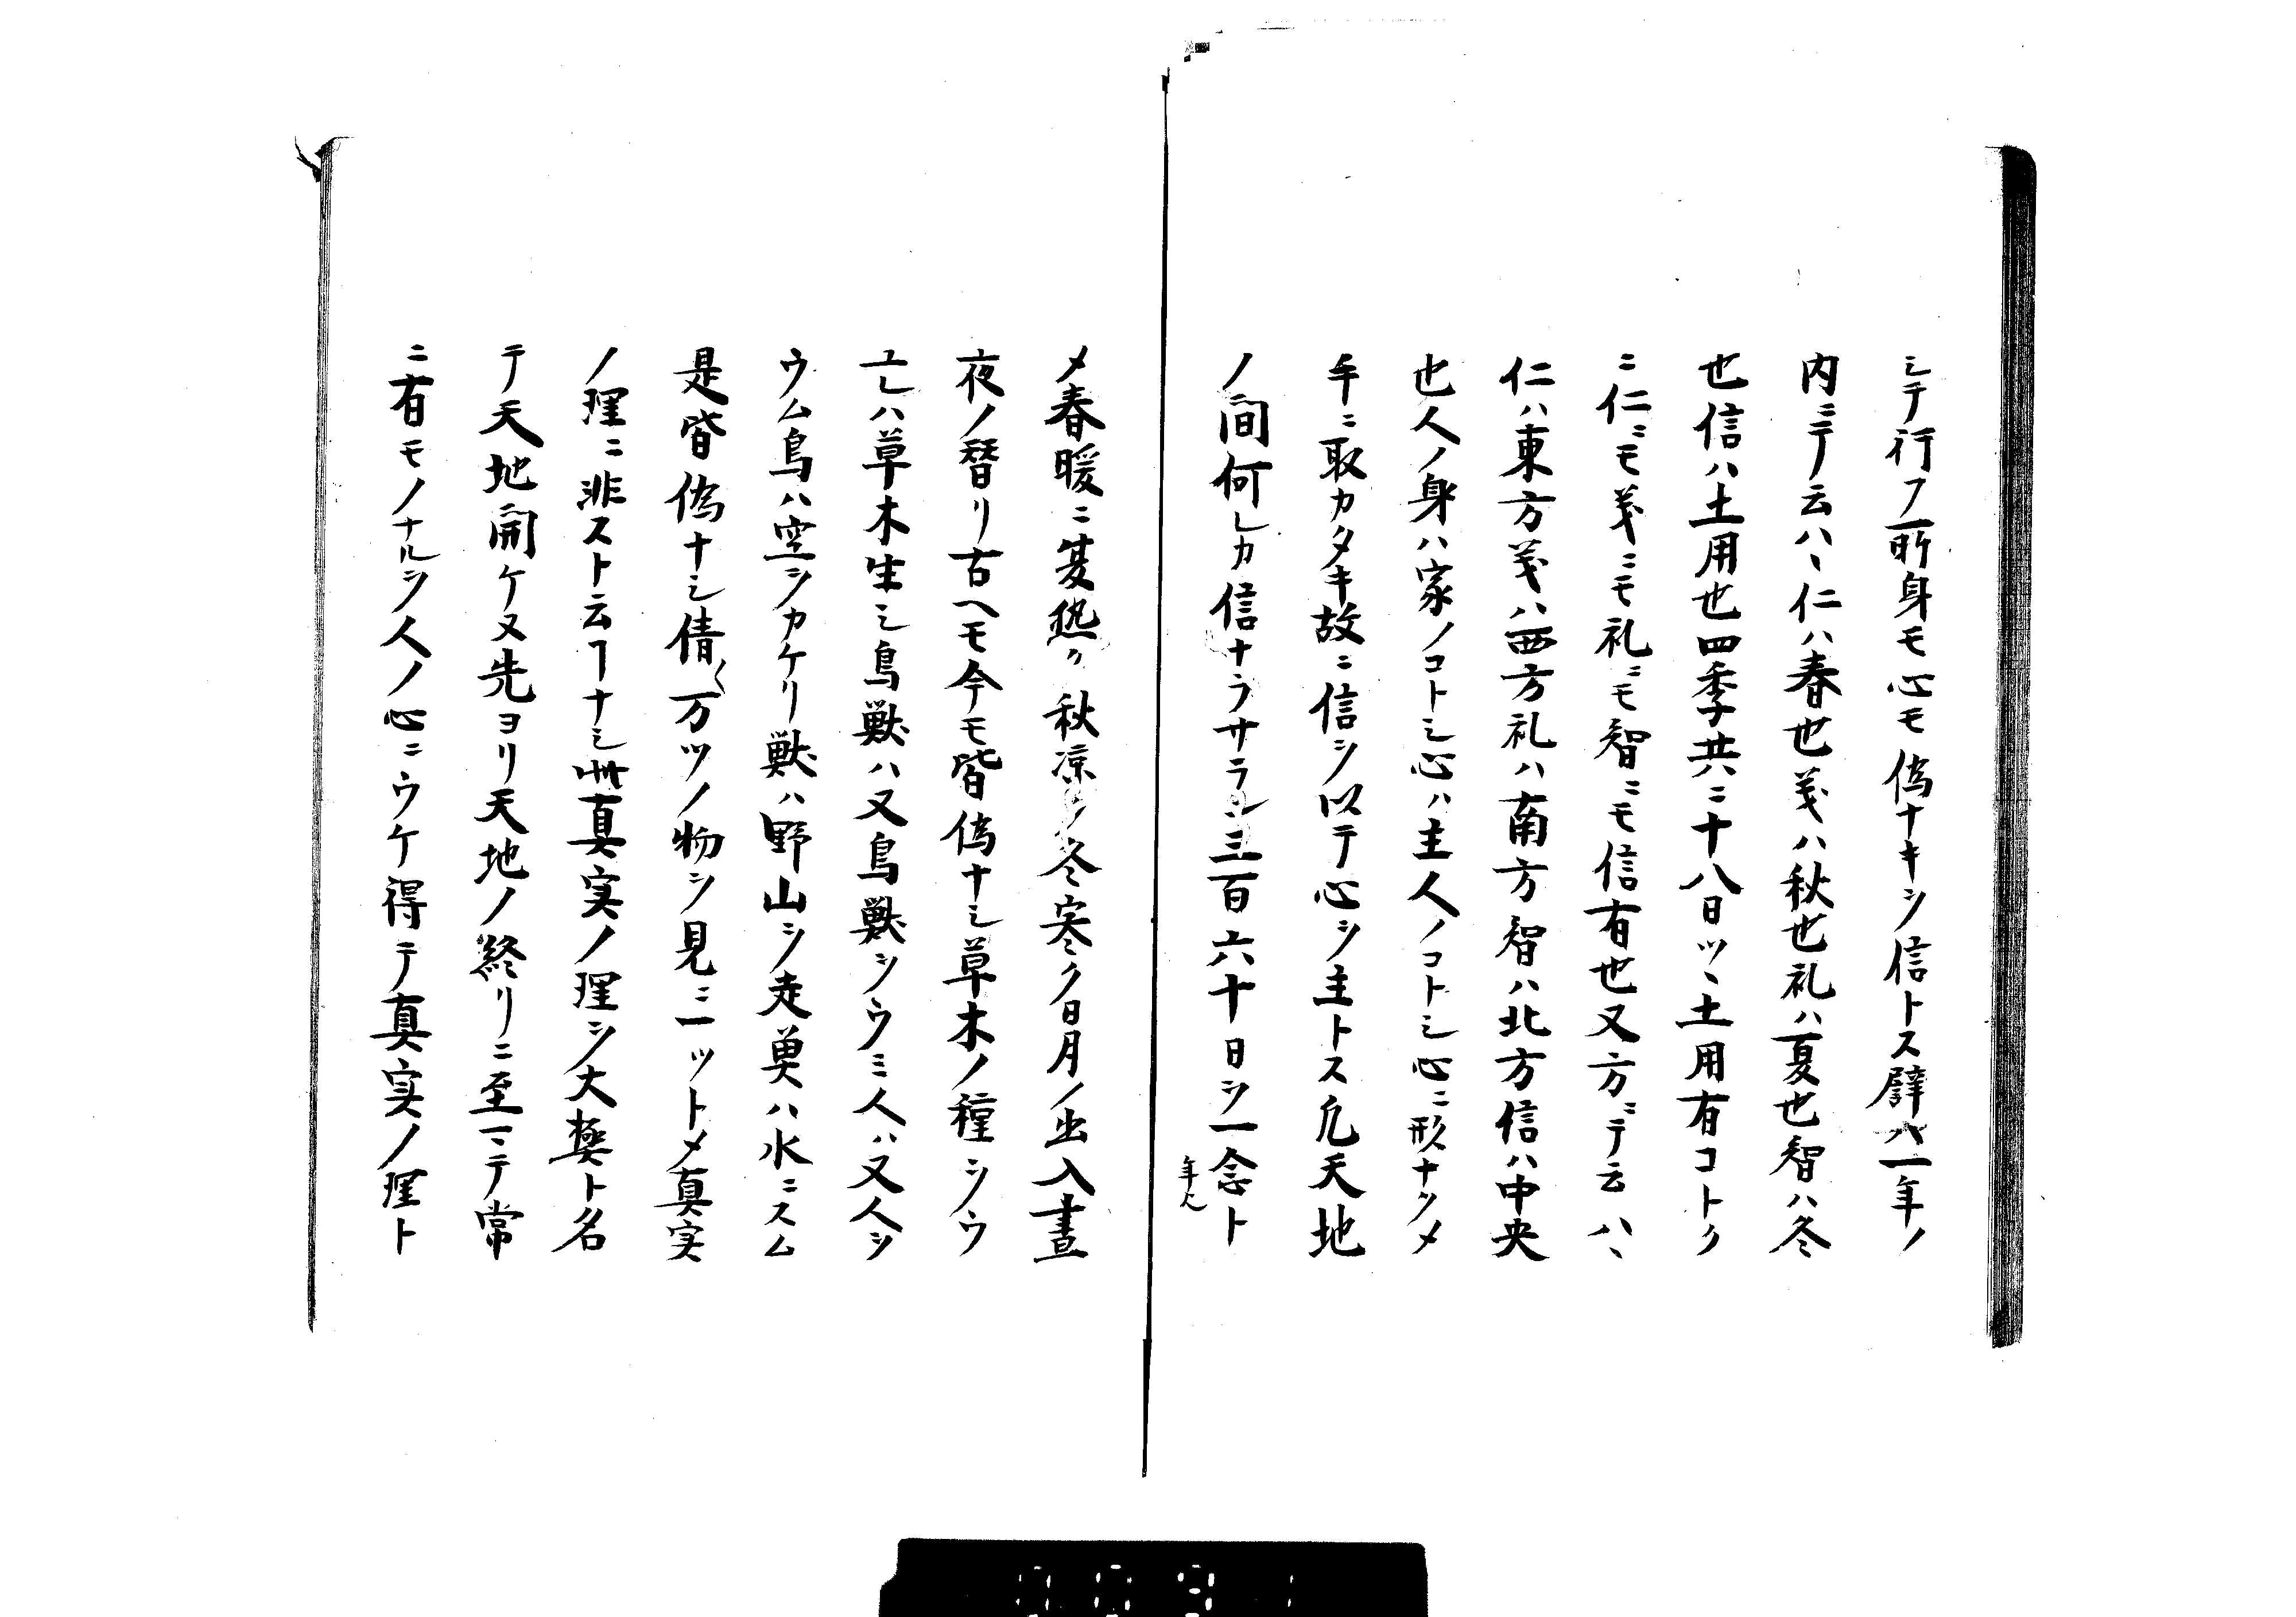 シテ行フ所身モ心モ偽ナキヲ信トス譬ハ一年ノ
内ニテ云ハヽ仁ハ春也義ハ秋也礼ハ夏也智ハ冬
也信ハ土用也四季共ニ十八日ツヽ土用有コトク
ニ仁ニモ義ニモ礼ニモ智ニモ信有也又方ニテ云ハヽ
仁ハ東方義ハ西方礼ハ南方智ハ北方信ハ中央
也人ノ身ハ家ノコトシ心ハ主人ノコトシ心ニ形ナクメ
手ニ取カタキ故ニ信ヲ以テ心ヲ主トス凡天地
ノ間何レカ信ナラサラン三百六十日ヲ一念ト
年人
メ春暖ニ夏熱ク秋凉ク冬寒ク日月ノ出入昼
夜ノ替リ古ヘモ今モ皆偽ナシ草木ノ種ヲウ
ユレハ草木生シ鳥獣ハ又鳥獣ヲウミ人ハ又人ヲ
ウム鳥ハ空ヲカケリ獣ハ野山ヲ走魚ハ水ニスム
是皆偽ナシ倩〱万ツノ物ヲ見ニ一ツトメ真実
ノ理ニ非スト云ヿナシ此真実ノ理ヲ大極ト名
テ天地開ケヌ先ヨリ天地ノ終リニ至ニテ常
ニ有モノナルヲ人ノ心ニウケ得テ真実ノ理ト